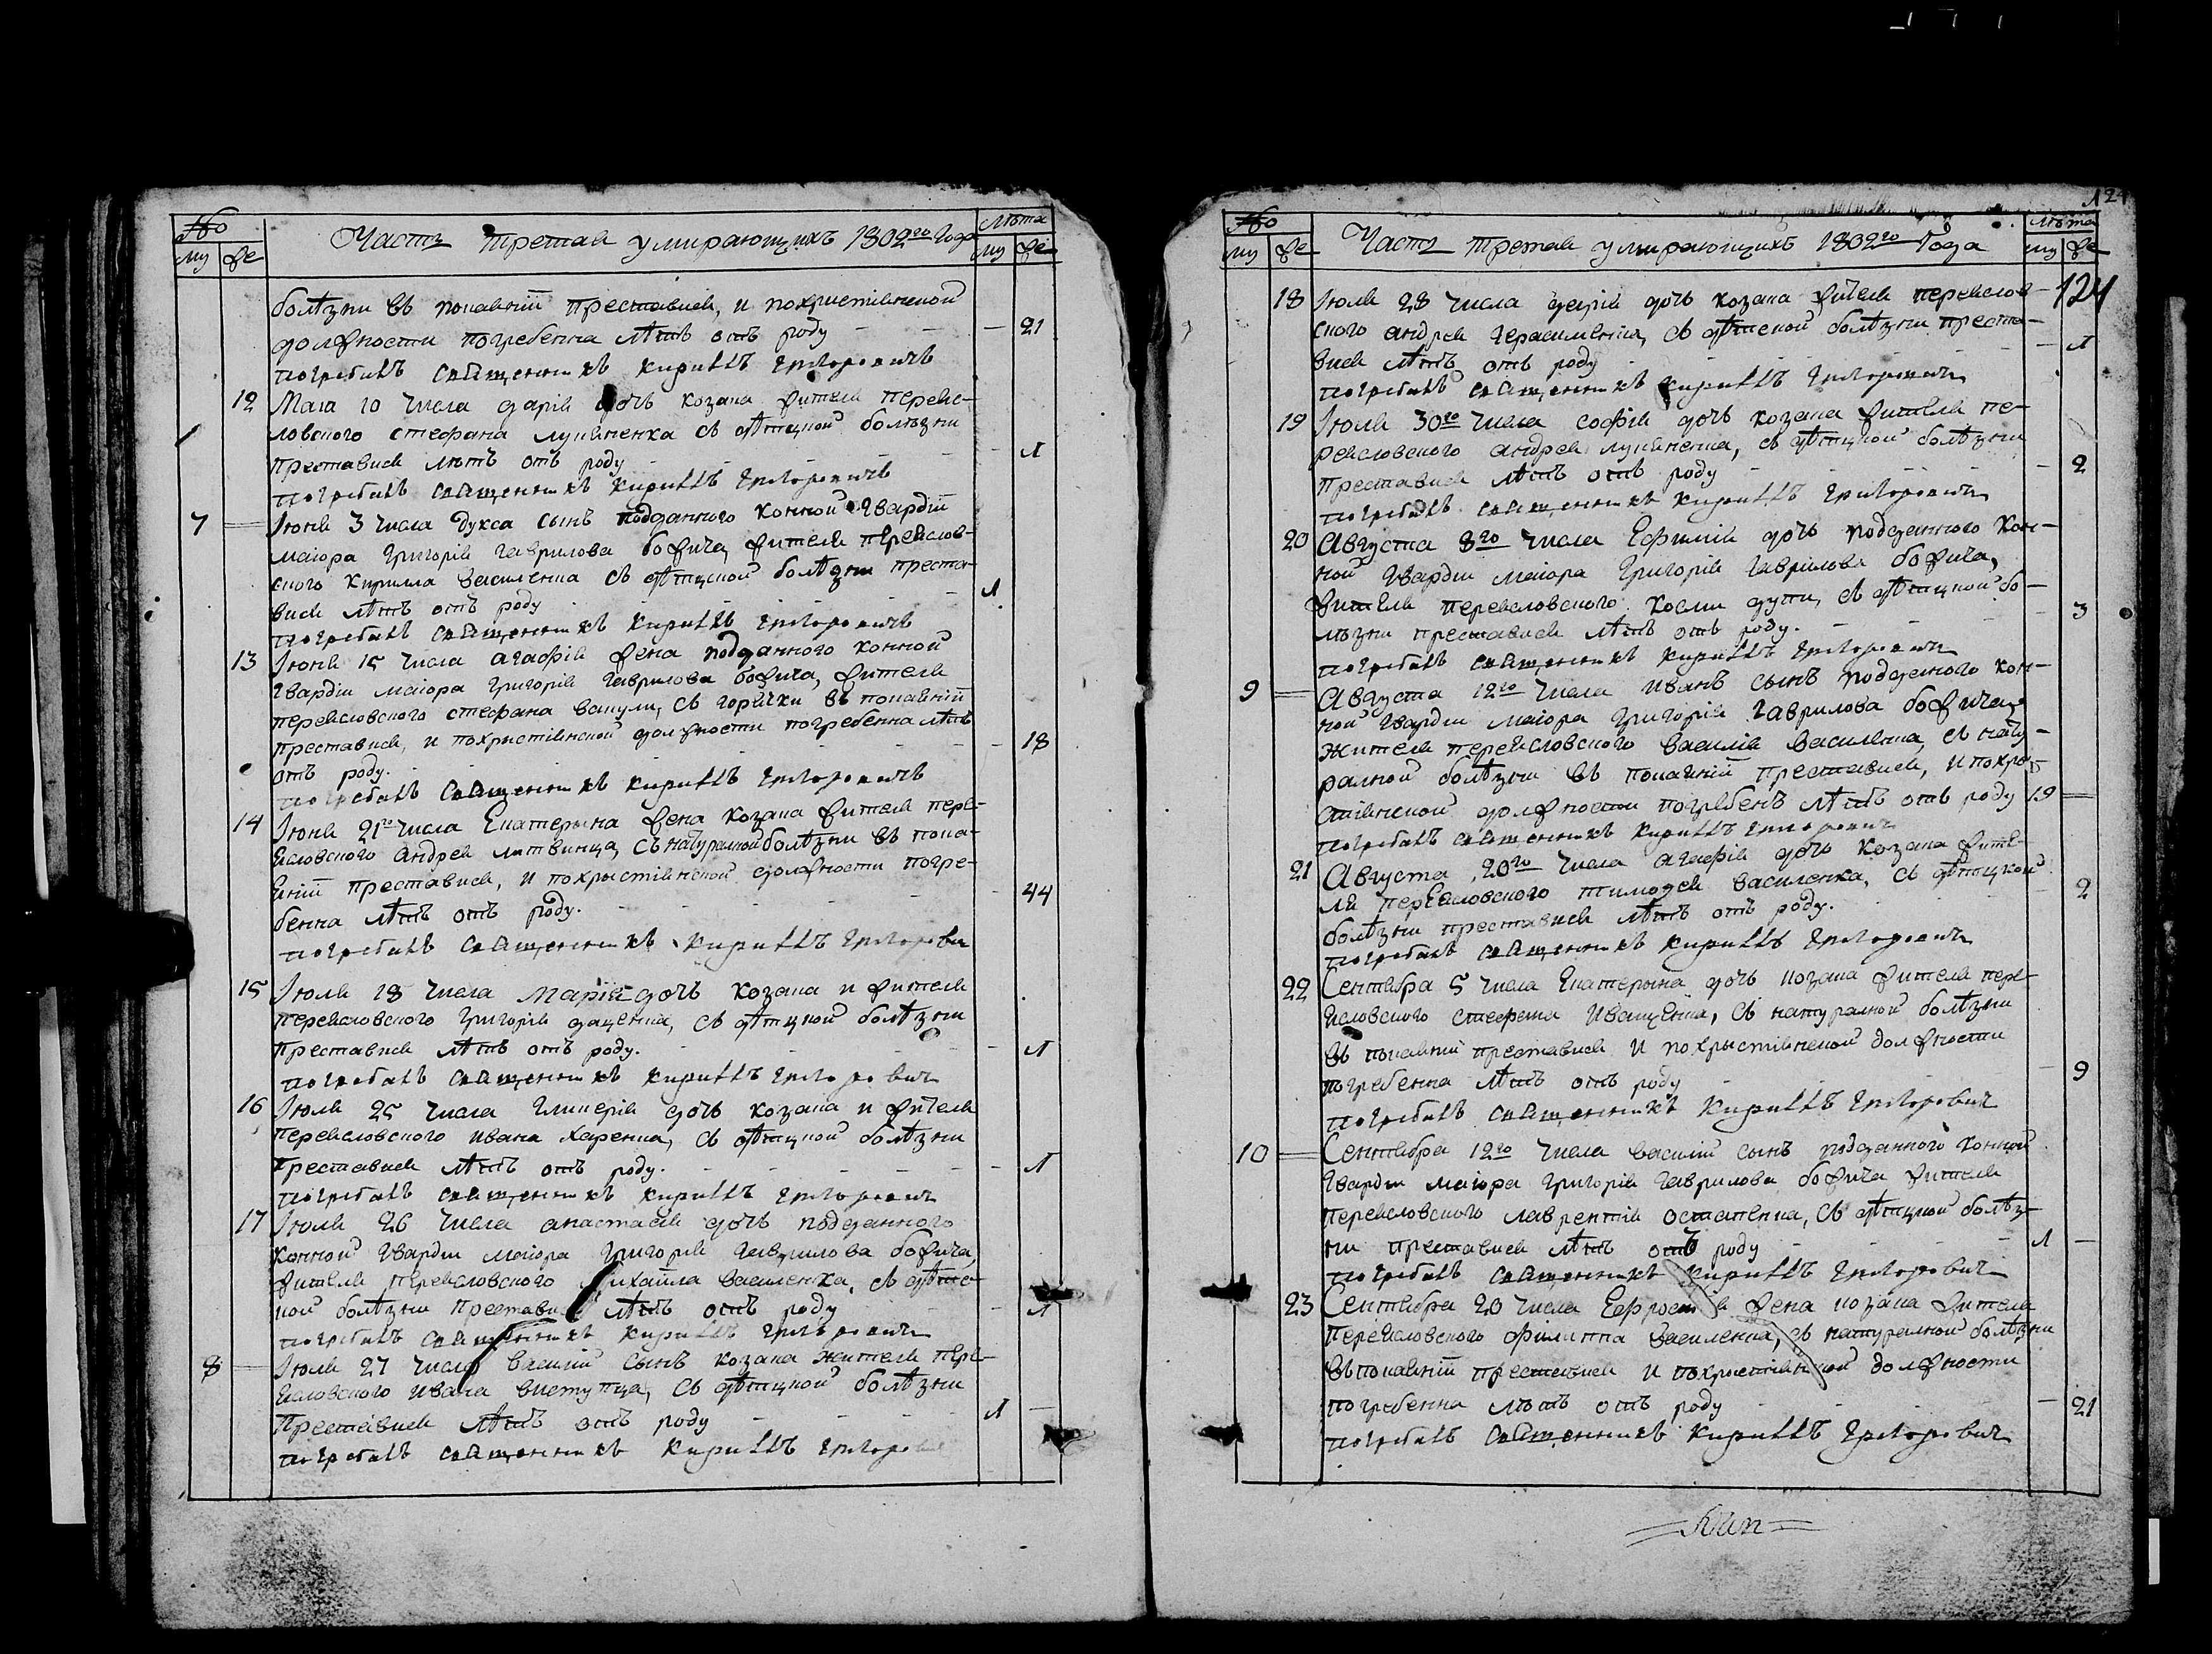 №
Часть третая умирающихъ 1802го Года
Лѣта
му
же
му
же
болѣзни въ покаянiи преставися, и похристiянской
должности погребенна лѣтъ отъ роду — 21
погребалъ священникъ Кириллъ Григоровичъ
12 Маiя 10 числа дарiя дочь козака жителя переяс-
ловского стефана лукяненка съ дѣтцкой болѣзни
преставися лѣтъ отъ роду — 1
погребалъ священникъ Кириллъ Григоровичъ
7 Iюня 3 числа дукса сынъ подданного конной гвардiи
маiора Григорiя Гаврилова божича, жителя переяслов-
ского кирилла василенка съ дѣтцкой болѣзни преста-
вися лѣтъ отъ роду 1
погребалъ священникъ Кириллъ Григоровичъ
13 Iюня 15 числа агафiя жена подданного конной
гвардiи маiора Григорiя Гаврилова божича, жителя
переясловского стефана вакули, съ горячки въ покаянiи
преставися, и похрыстiянской должности погребенна лѣтъ
отъ роду. — 18
погребалъ священникъ Кириллъ Григоровичъ
14 Iюня 21го числа Екатерына жена козака жителя пере-
ясловского Андрея литвинца, съ натуралной болѣзни въ пока-
янiи преставися, и похрыстiянской должности погре-
бенна лѣтъ отъ роду. — 44
погребалъ священникъ Кириллъ Григорови
15 Iюля 18 числа Марiя дочь козака и жителя
переясловского Григорiя даценка, съ дѣтцкой болѣзни
преставися лѣтъ отъ роду. — 1
погребалъ священникъ Кириллъ Григорович
16 Iюля 25 числа Гликерiя дочь козака и жителя
переясловского ивана харенка, съ дѣтцкой болѣзни
преставися лѣтъ отъ роду. — 1
погребалъ священникъ Кириллъ Григорович
17 Iюля 26 числа анастасiя дочь подданного
конной гвардiи маiора Григорiя Гаврилова божича,
жителя переясловского Михайла василенка, съ дѣтс-
кой болѣзни преставися лѣтъ отъ роду — 1
погребалъ священникъ Кириллъ Григорович
8 Iюля 27 числа василiй сынъ козака жителя пере-
ясловского ивана виступца, съ дѣтцкой болѣзни
преставися лѣтъ отъ роду 1 —
погребалъ священникъ Кириллъ Григорови
124
№
Часть третая умирающихъ 1802го Года
Лѣта
му
же
му
же
124
18 Iюля 28 числа дарiя дочь козака жителя переяслов-
ского андрея герасименка, съ дѣтской болѣзни преста-
вися лѣтъ отъ роду — 1
погребалъ священникъ Кириллъ Григорович
19 Iюля 30го числа софiя дочь козака жителя пе-
реясловского андрея лукяненка, съ дѣтцкой болѣзни
преставися лѣтъ отъ роду — 2
погребалъ священникъ Кириллъ Григорович
20 Августа 8го числа Ефимiя дочь подданного кон-
ной гвардiи маiора Григорiя Гаврилова божича,
жителя переясловского космы дупи, съ дѣтцкой бо-
лѣзни преставися лѣтъ отъ роду. — 3
погребалъ священникъ Кириллъ Григорович
9 Августа 12го числа иванъ сынъ подданного кон-
ной гвардiи маiора Григорiя Гаврилова божича,
жителя переясловского василiя василенка, съ нату-
ралной болѣзни въ покаянiи преставися, и похри
стiянской должности погребенъ лѣтъ отъ роду 19
погребалъ священникъ Кириллъ Григорович
21 Августа 20го числа агафiя дочь козака жите-
ля переясловского тимофея василенка, съ дѣтцкой
болѣзни преставися лѣтъ отъ роду. 2
погребалъ священникъ Кириллъ Григорович
22 Сентября 5 числа Екатерына дочь козака жителя пере-
ясловского стефана Иващенка, съ натуралной болѣзни
въ покаянiи преставися и похрыстiянской должности
погребенна лѣтъ отъ роду — 9
погребалъ священникъ Кириллъ Григорович
10 Сентября 12го числа василiй сынъ подданного конной
гвардiи маiора Григорiя Гаврилова божича жителя
переясловского лаврентiя остапенка, съ дѣтцкой болѣз-
ни преставися лѣтъ отъ роду 1 —
погребалъ священникъ Кириллъ Григорович
23 Сентября 20 числа жена козака жителя
переясловского филиппа василенка, съ натуралной болѣзни
въ покаянiи преставися и похрыстiянской должности
погребенна лѣтъ отъ роду — 21
погребалъ священникъ Кириллъ Григорович